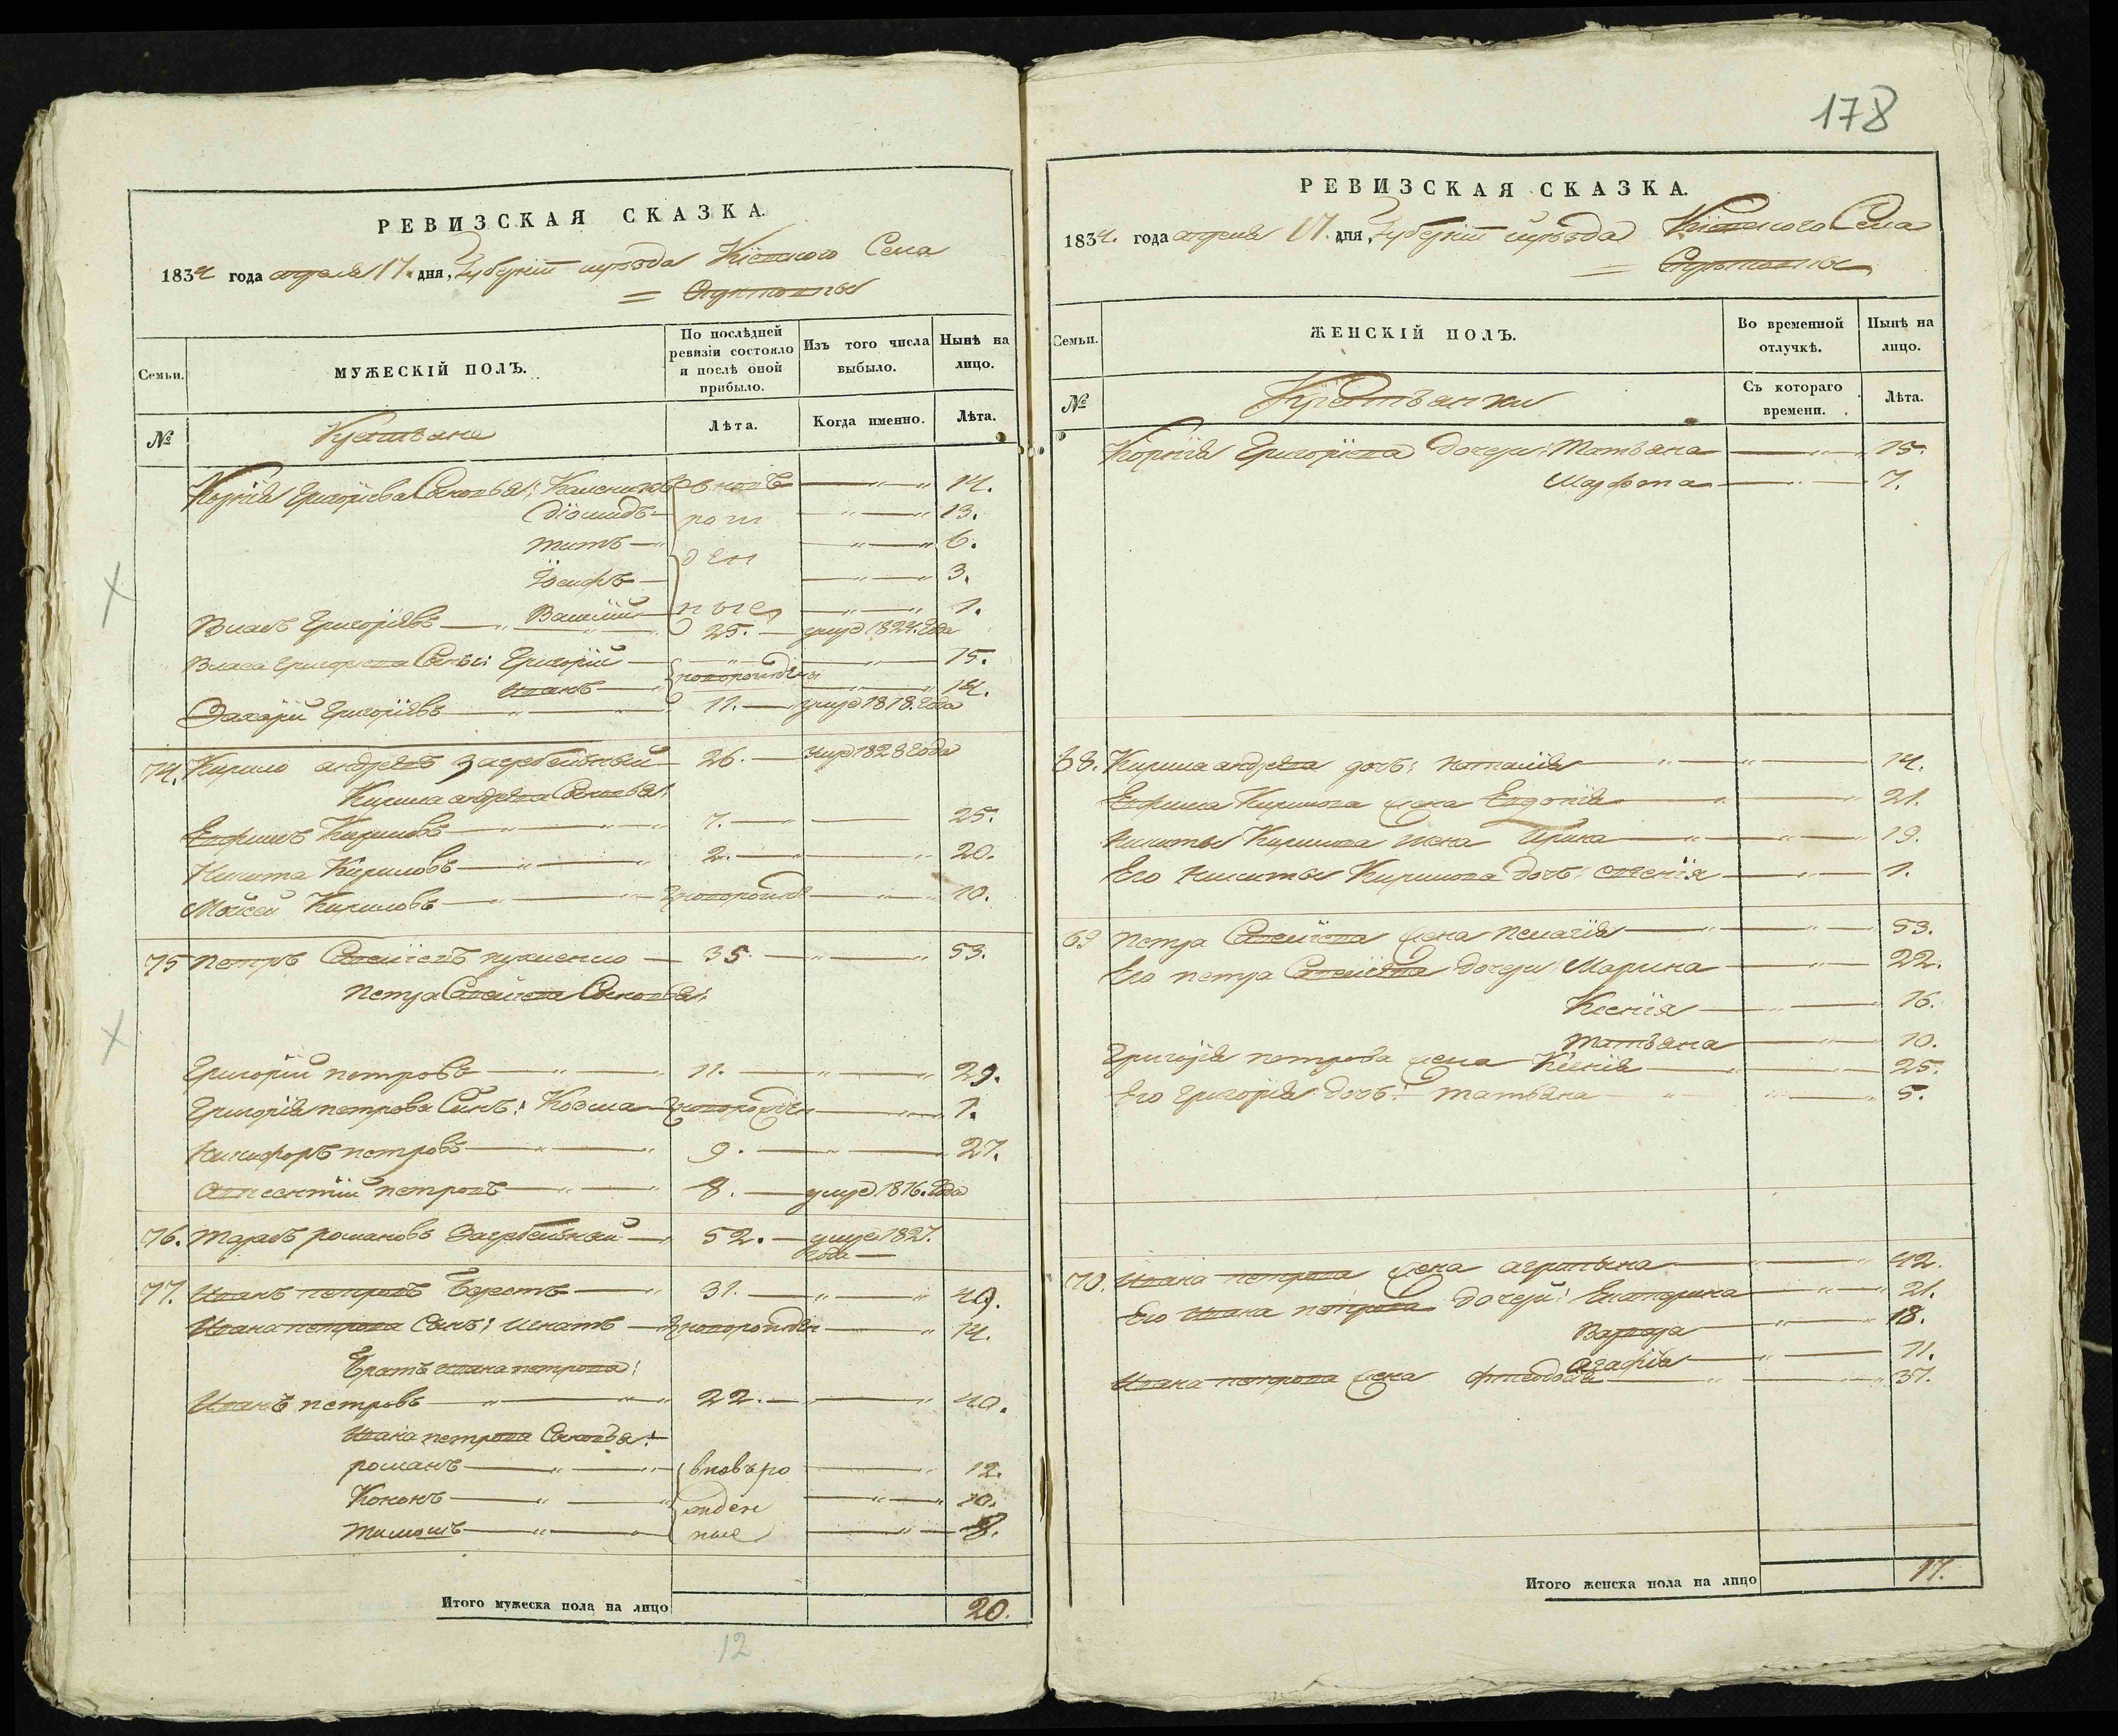 РЕВИЗСКАЯ СКАЗКА.
1834 года апреля 17. дня, Губерніи и уѣзда Кіевского Села
МУЖЕСКІЙ ПОЛЪ.
Семьи.
По послѣдней ревизіи состояло и послѣ оной прибыло.
Изъ того числа выбыло.
Нынѣ на лицо.
№
Крестьяне
Лѣта.
Когда именно.
Лѣта.
Корнія Григоріева Сыновья: вновь 14.
Діомидъ рож 13.
Титъ ден 6.
Іосифъ 3.
Василій ные 1.
Власъ Григоріевъ 25. умре 1824. Года
Власа Григоріева Сыны: Григорій 15.
Иванъ новорожденны 14.
Захарій Григоріевъ 11. умре 1818. Года
74. Кирило андреевъ Загребельный 26. умре 1828 Года
Кирила андреева Сыновья:
Евфимъ Кириловъ 7. 25.
Никита Кириловъ 2. 20.
Мойсей Кириловъ новорожд 10.
75 Петръ 35. 53.
Петра Сыновья:
Григорій петровъ 11. 29.
Григорія петрова Сынъ: Козма новорожден 1.
Никифоръ петровъ 9. 27.
петровъ 8. умре 1816. Года
76. Тарасъ романовъ Загребельный 52. умре 1827. Года
77. Иванъ петровъ 31. 49.
Ивана петрова Сынъ: Игнатъ новорожден 14.
Братъ ивана петрова:
Иванъ петровъ 22. 40.
Ивана петрова Сыновья:
романъ вновь ро 12.
Кононъ жден 10.
Тимошъ ные 8.
Итого мужеска пола на лицо 20.
12
178
РЕВИЗСКАЯ СКАЗКА.
1834. года апреля 17. дня, Губерніи и уѣзда Кіевского Села
Семьи.
ЖЕНСКІЙ ПОЛЪ.
Во временной отлучкѣ.
Нынѣ на лицо.
№
Крестьянки
Съ котораго времени.
Лѣта.
Корнія Григоріева дочери: Татьяна 15.
Марфа 7.
68. Кирила андреева дочь: Наталія 14.
Евфима Кирилова жена Евдокія 21.
Никиты Кирилова жена Ирина 19.
Его Никиты Кирилова дочь: 1.
69 Петра жена Пелагія 53.
Его петра дочери Марина 22.
Ксенія 16.
Татьяна 10.
Григорія петрова жена Ксенія 25.
Его Григорія дочь: Татьяна 5.
70. Ивана петрова жена агрипина 42.
Его Ивана петрова дочери: Екатерина 21.
Варвара 18.
агафія 11.
Ивана петрова жена феодосія 37.
Итого женска пола на лицо 17.